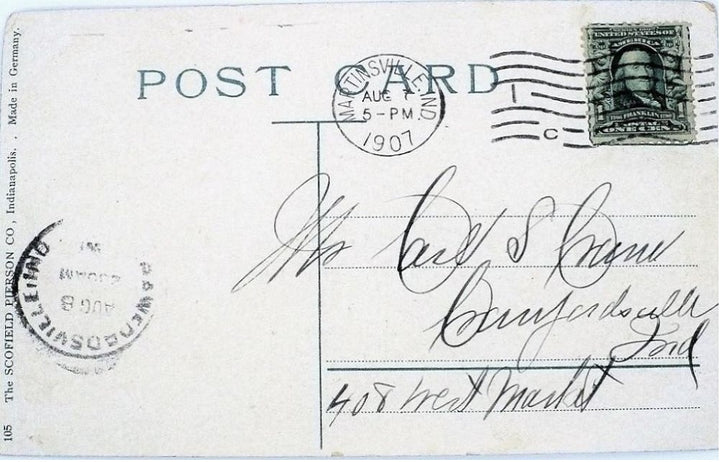 105 The SCOFIELD PIERSON CO., Indianapolis. Made in Germany.
POST CARD
MARTINSVILLE, IND.
AUG 7
5-PM
1907
1 C
UNITED STATES OF
AMERICA
FRANKLIN
POSTAGE
ONE CENT
Mr Carl S Crane
Crawfordsville
Ind
408 West Market
CRAWFORDSVILLE, IND
AUG 8